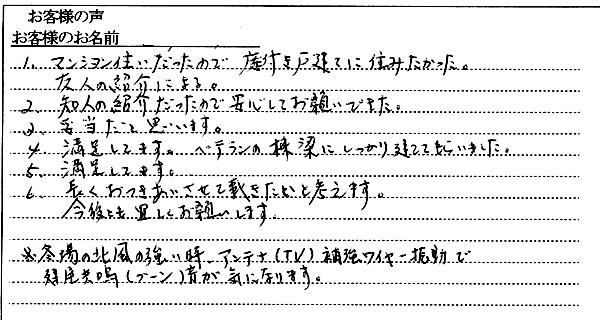 お客様の声
お客様のお名前
1. マンション住いだったので 庭付き戸建てに住みたかった。
友人の紹介による。
2. 知人の紹介だったので安心してお願いできた。
3. 妥当だと思います。
4. 満足してます。 ベテランの棟梁にしっかり建ててもらいました。
5. 満足してます。
6. 長くおつきあいさせて戴きたいと考えます。
今後とも宜しくお願いします。
※冬場の北風の強い時、アンテナ(TV)補強ワイヤー振動で
共鳴(ブーン)音が気になります。